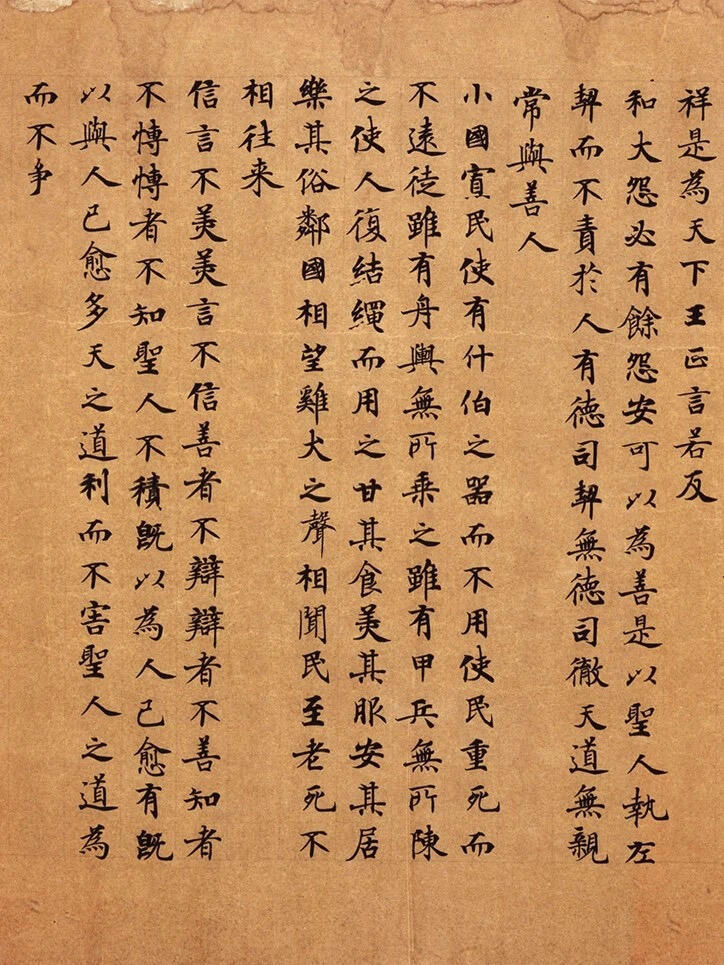 祥是為天下王正言若反
和大怨必有餘怨安可以為善是以聖人執左
契而不責於人有徳司契無徳司徹天道無親
常與善人
小國寡民使有什伯之器而不用使民重死而
不遠徙雖有舟輿無所乗之雖有甲兵無所陳
之使人復結繩而用之甘其食美其服安其居
樂其俗鄰國相望雞犬之聲相聞民至老死不
相往来
信言不美美言不信善者不辯辯者不善知者
不愽愽者不知聖人不積既以為人己愈有既
以與人已愈多天之道利而不害聖人之道為
而不争